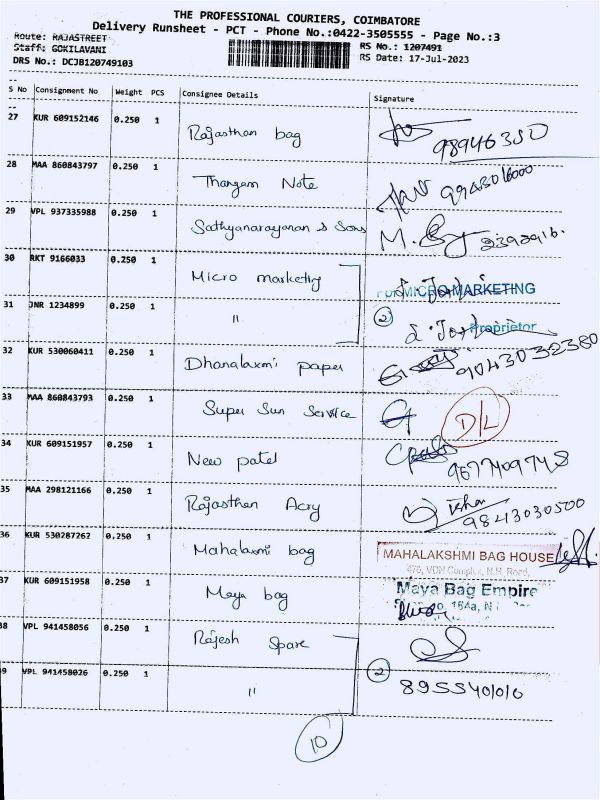 THE PROFESSIONAL COURIERS, COIMBATORE
Delivery Runsheet - PCT - Phone No.:0422-3505555 - Page No.:3
Route: RAJASTREET
RS No.: 1207491
Staff: GOKILAVANI
RS Date: 17-Jul-2023
DRS No.: DCJB120749103
S No Consignment No Weight PCS Consignee Details Signature
27 KUR 609152146 0.250 1 Rajasthan bag 98946350
28 MAA 860843797 0.250 1 Thangam Note 9943016000
29 VPL 937335988 0.250 1 Sathyanarayanan & Sons 2392916.
30 RKT 9166033 0.250 1 Micro marketing FOR MICRO MARKETING
31 JNR 1234899 0.250 1 " 2 Proprietor
32 KUR 530060411 0.250 1 Dhanalaxmi paper 9043032380
33 MAA 860843793 0.250 1 Super Sun Service D/L
34 KUR 609151957 0.250 1 New patel 9677409748
35 MAA 298121166 0.250 1 Rajasthan Acry 9843030500
36 KUR 530287262 0.250 1 Mahalaxmi bag MAHALAKSHMI BAG HOUSE
476, VDN Complex, N.H. Road,
37 KUR 609151958 0.250 1 Maya bag Maya Bag Empire
164a, N
38 VPL 941458056 0.250 1 Rajesh Spare
39 VPL 941458026 0.250 1 " 2 895540100
10